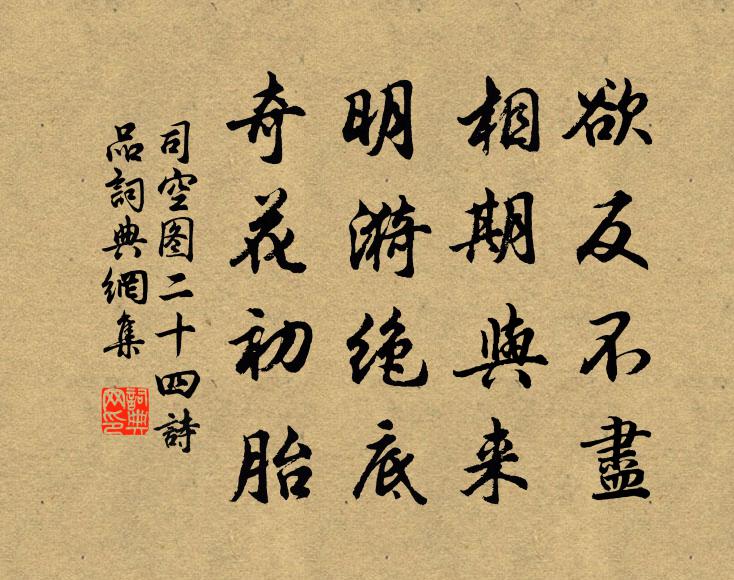 欲反不盡
相期與来
明漪绝底
奇花初胎
司空图二十四詩
品詞典網集
詞典
网印